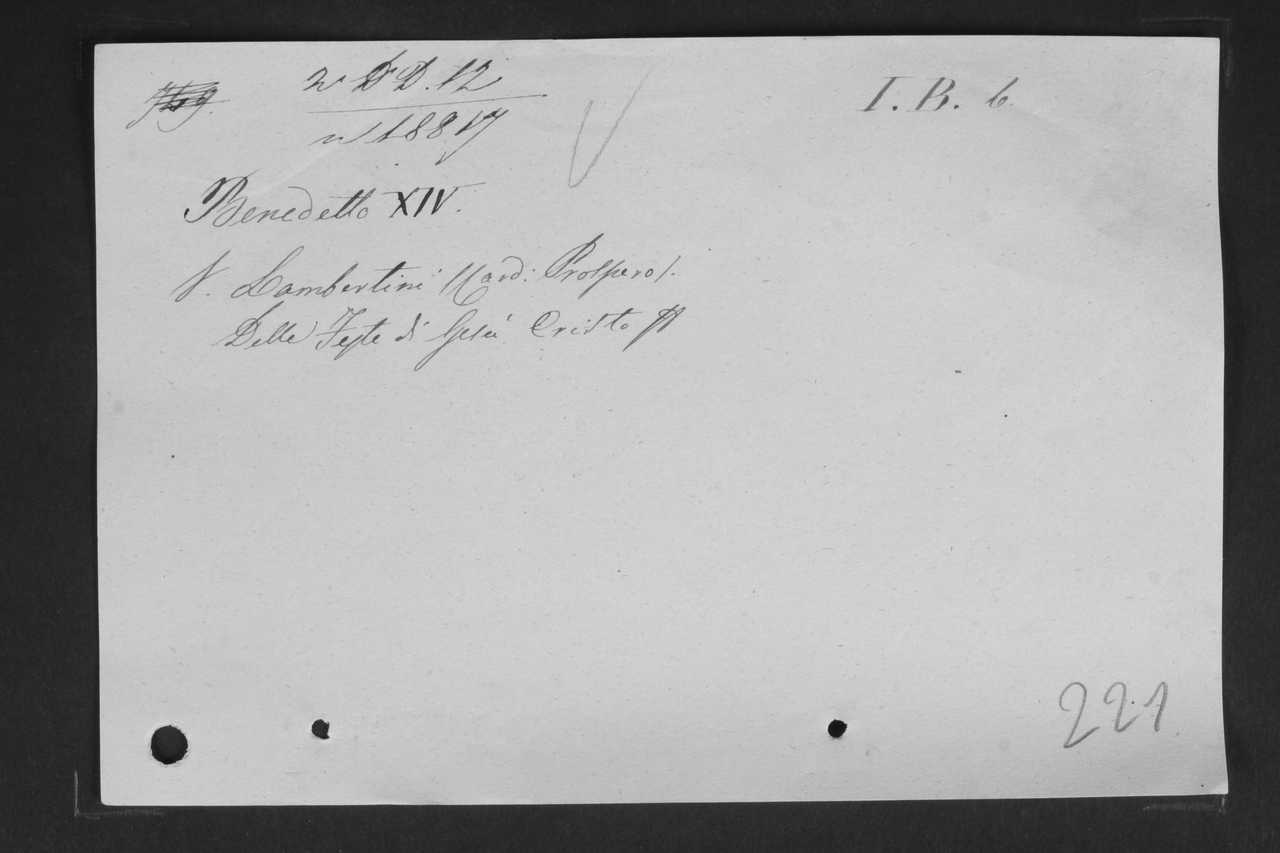 D D. 12
I. B. 6
18817
Benedetto XIV.
V. Lambertini (Card: Prospero).
Delle Feste di Gesù Cristo
221